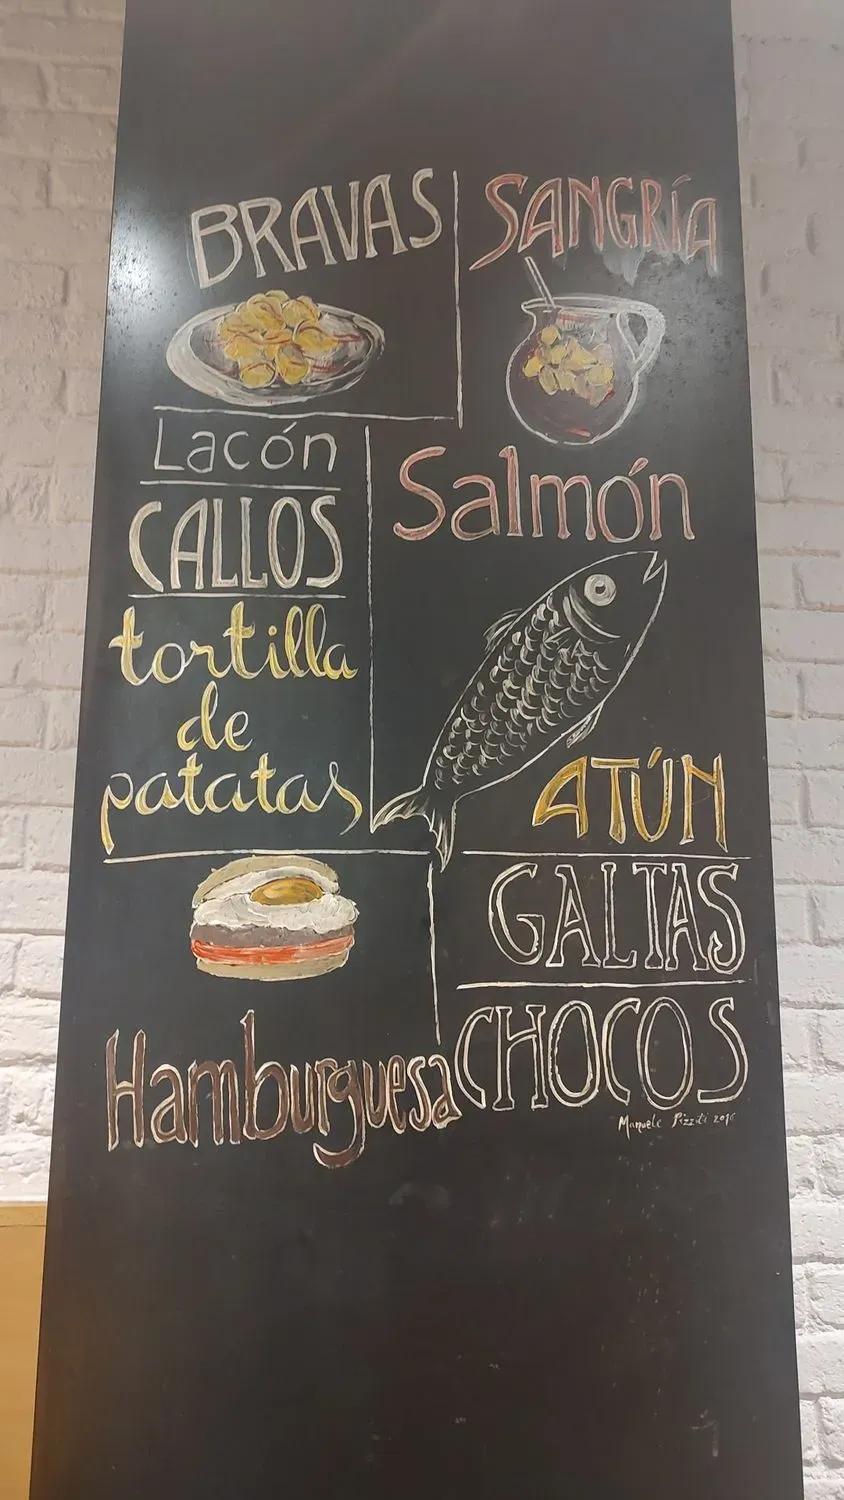 BRAVAS
SANGRÍA
Lacón
CALLOS
tortilla
de
patatas
Salmón
ATÚN
GALTAS
CHOCOS
Hamburguesa
Manuele